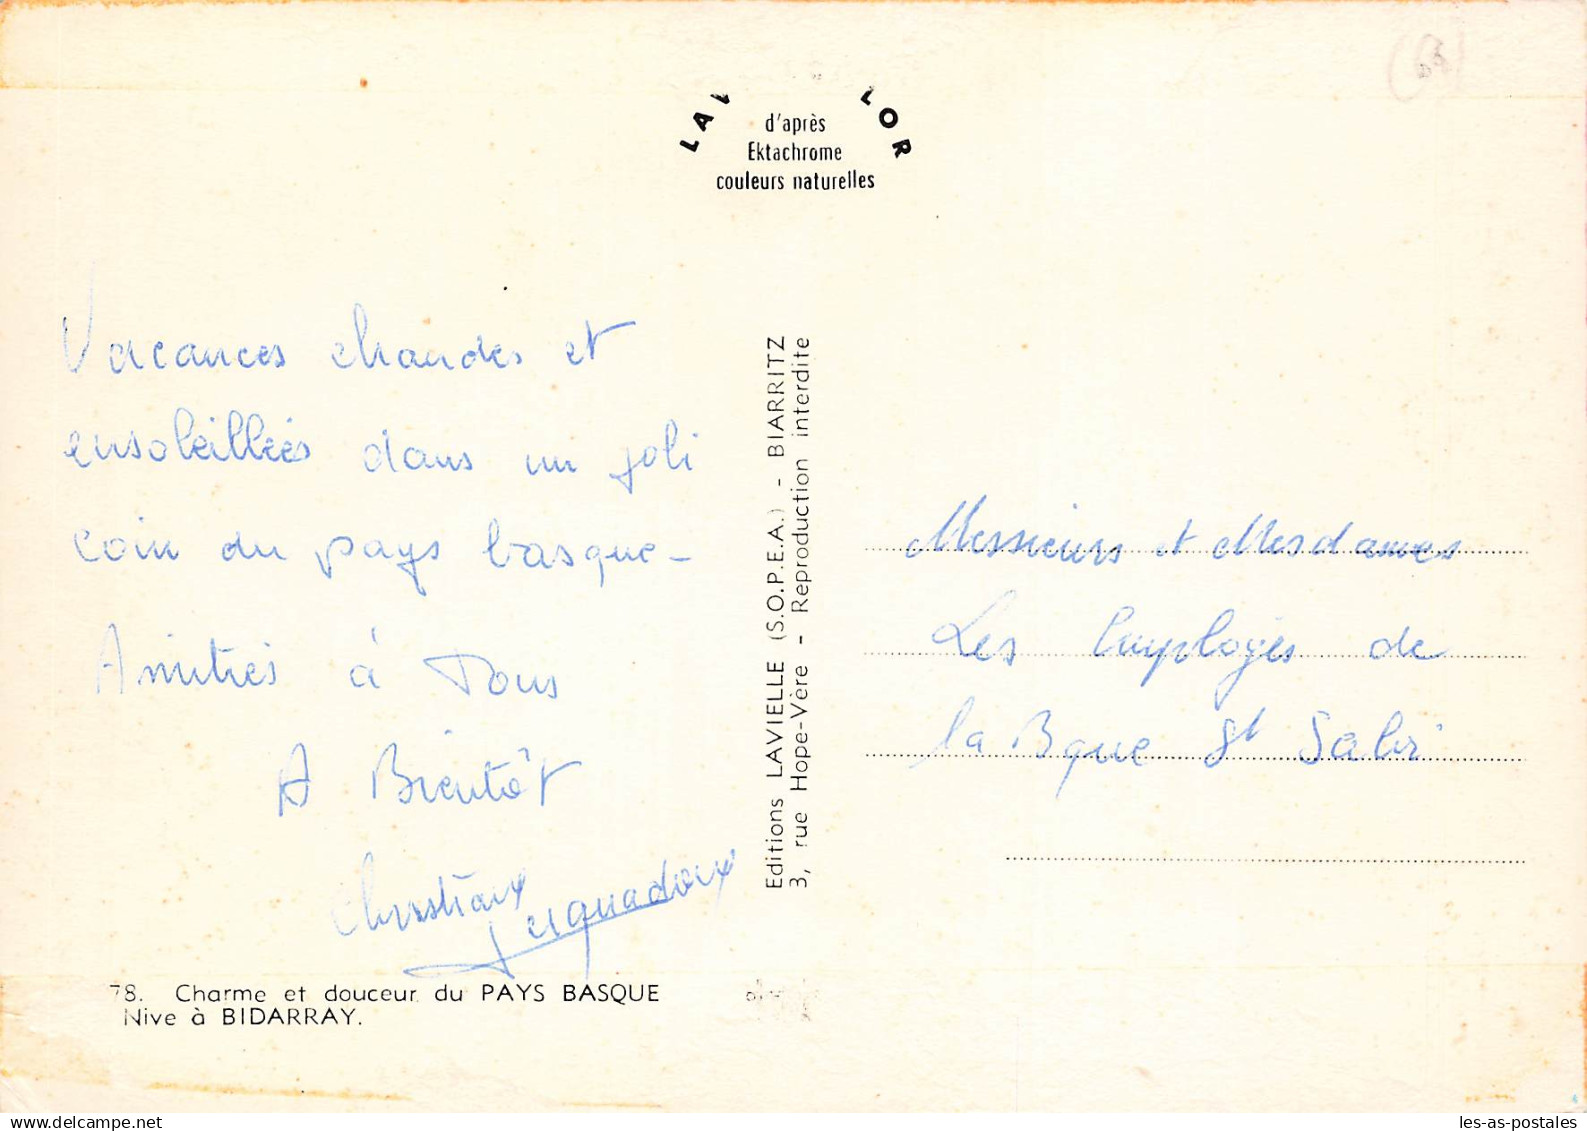 d'après
Ektachrome
couleurs naturelles
Vacances chaudes et
ensoleillées dans un joli
coin du pays basque -
Amitiés à Tous
A Bientôt
Christian
78. Charme et douceur du PAYS BASQUE
Nive à BIDARRAY.
Editions LAVIELLE (S.O.P.E.A.) - BIARRITZ
3, rue Hope-Vère - Reproduction interdite
Messieurs et Mesdames
Les Employés de
la Bque St
les-as-postales